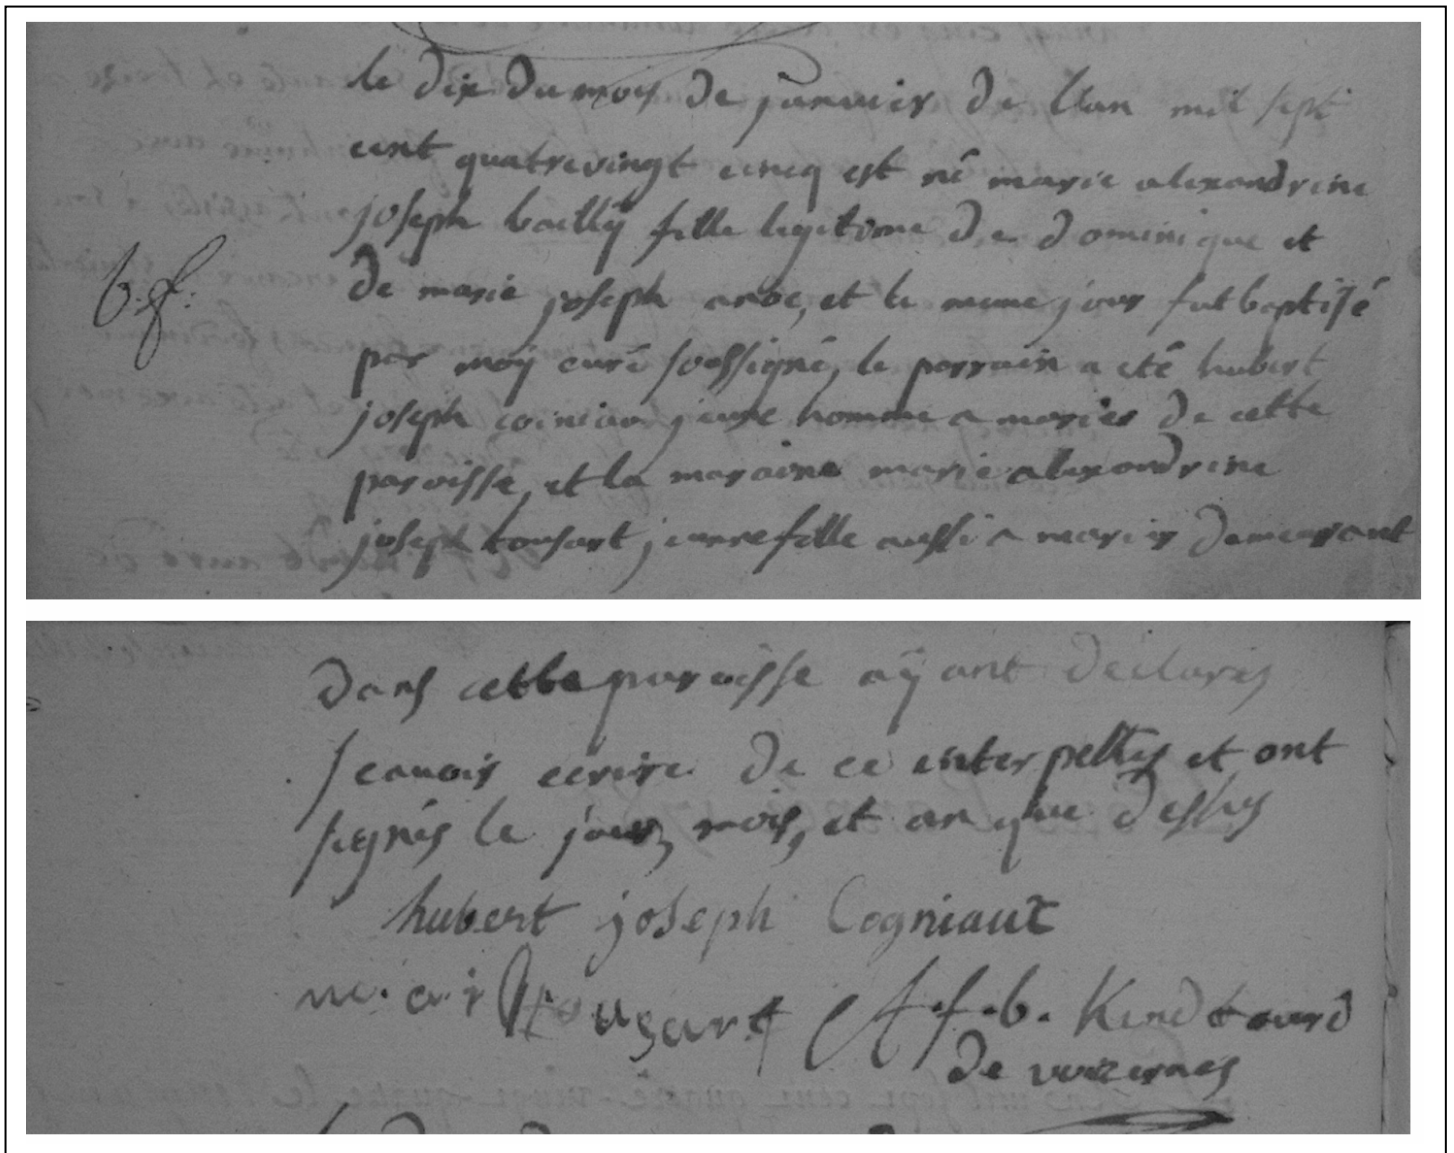 le dix du mois de janvier de l'an mil sept
cent quatrevingt cincq est né marie alexandrine
joseph bailly fille legitime de dominique et
b. f:
de marie joseph et le meme jour fut baptisé
par moÿ curé soussigné, le parrain a eté hubert
joseph coiniau jeune homme a marier de cette
paroisse, et la maraine marie alexandrine
joseph tousart jeune fille aussi a marier demeurant
dans cette paroisse aÿant declarés
scavoir ecrire de ce enterpellés et ont
signés le jour, mois, et an que dessus
hubert joseph Cogniaux
m. a. j. Touzart f. b. Kind
de